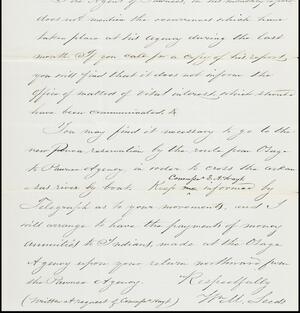 The Agent of Pawnees, in his monthly report
does not mention the occurrences which have
taken place at his Agency during the last
month & if you call for a copy of his report,
you will find that it does not inform the
office of matters of vital interest, which should
have been communicated, &
You may find it necessary to go to the
new Ponca reservation by the route from Osage
to Pawnee Agency, in order to cross the Arkan
sas river by boat. Keep me informed by
Commisr E. A. Hayt
Telegraph as to your movements, and I
will arrange to have the payments of money
annuities to Indians, made at the Osage
Agency upon your return northward from
the Pawnee Agency. Respectfully
(Written at request of Commisr Hayt) Wm. M. Leeds